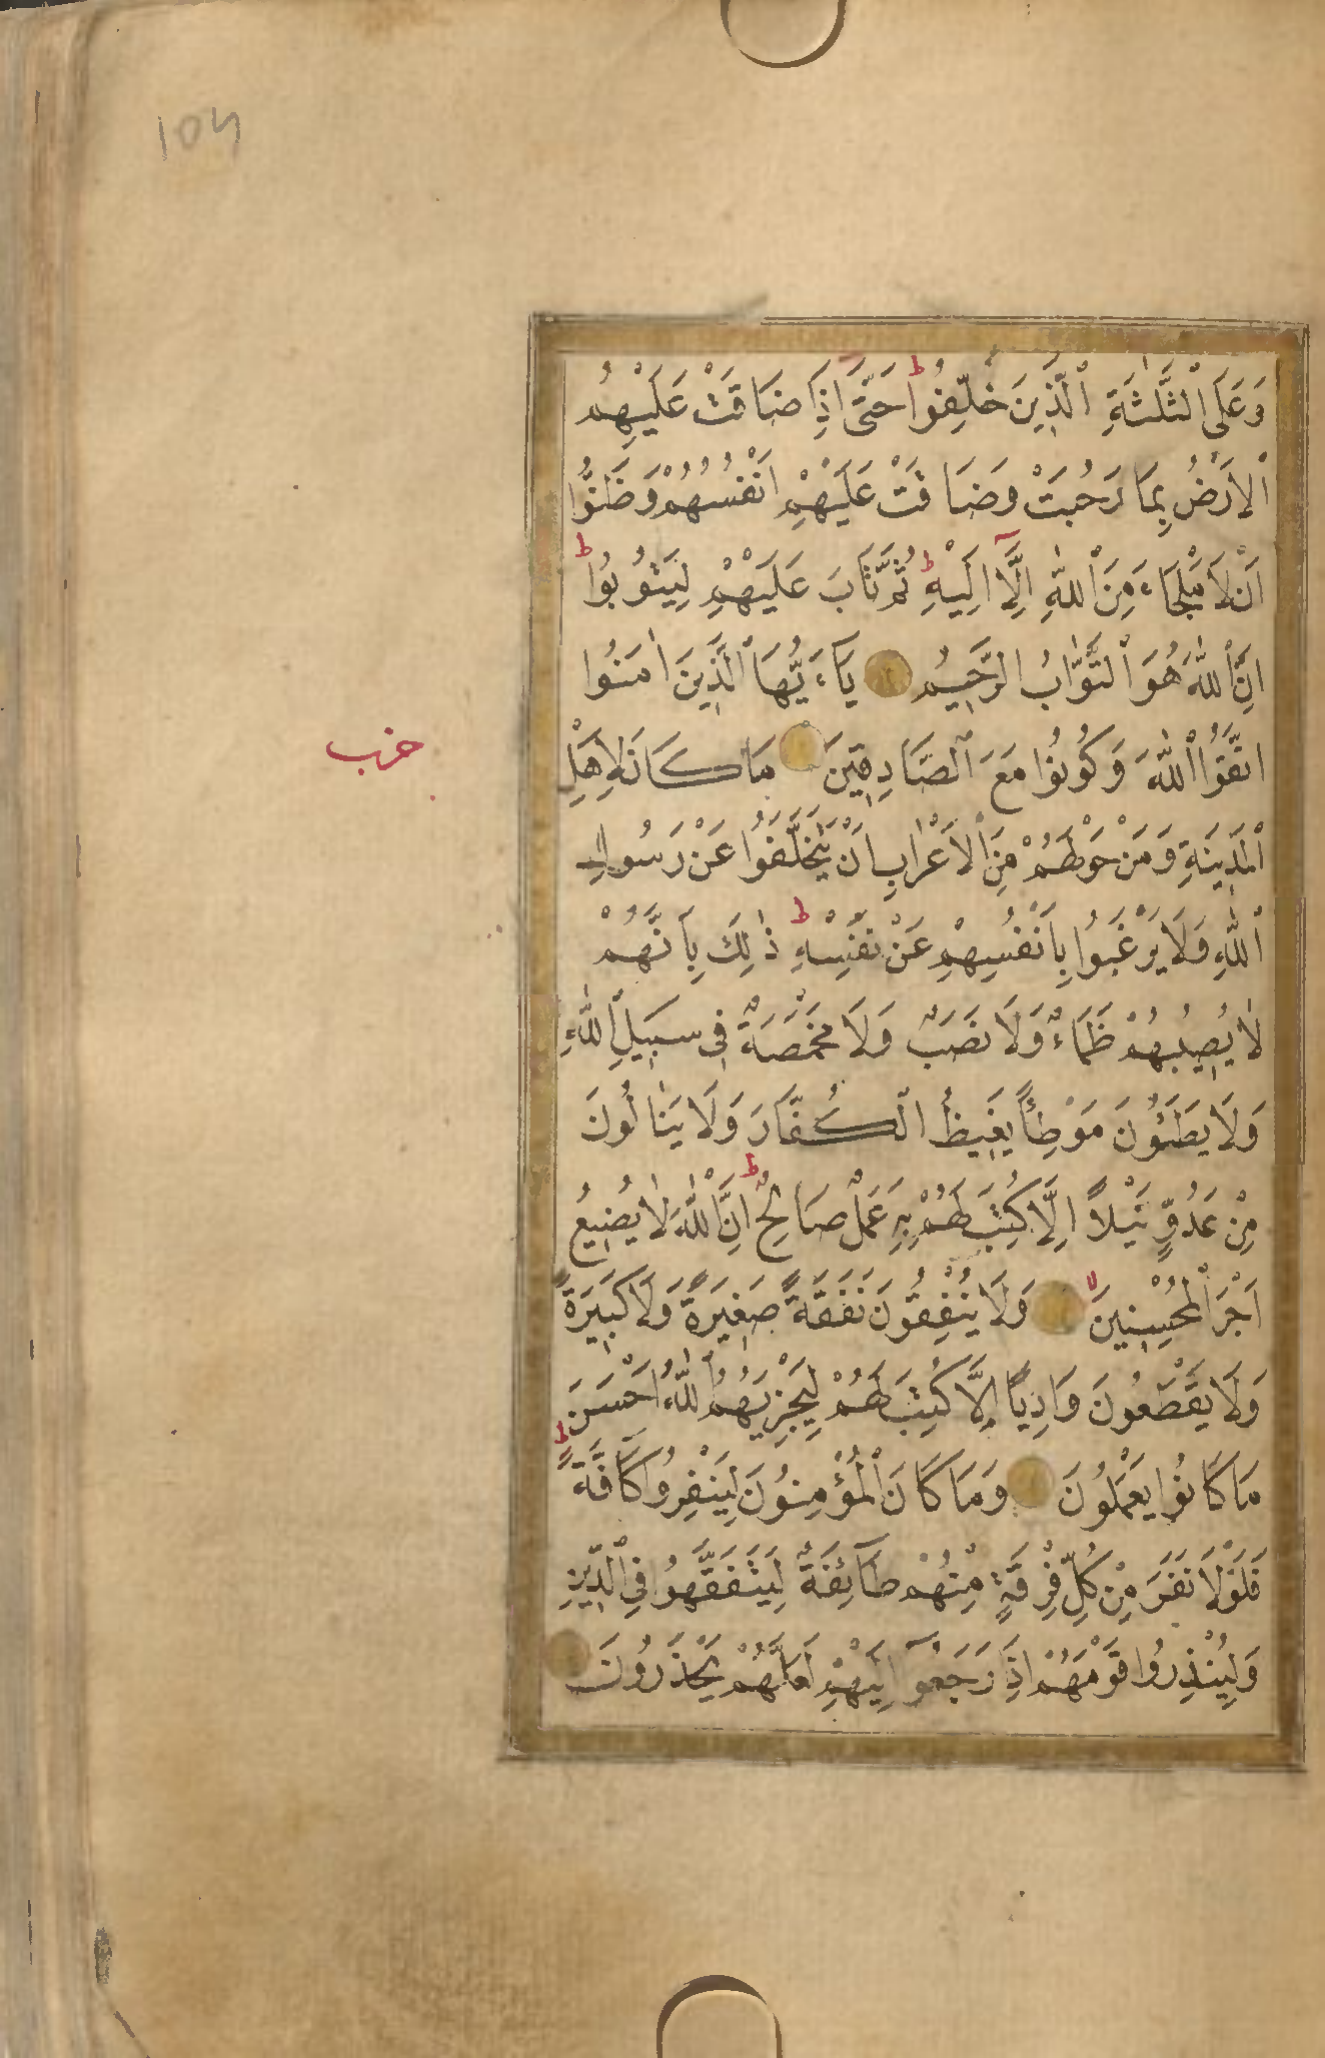 104
وَعَلَى ٱلثَّلٰثَةِ ٱلَّذِينَ خُلِّفُوا ط حَتَّىٰٓ اِذَا ضَاقَتْ عَلَيْهِمُ
ٱلْاَرْضُ بِمَا رَحُبَتْ وَضَاقَتْ عَلَيْهِمْ اَنْفُسُهُمْ وَظَنُّوٓا
اَنْ لَا مَلْجَاءَ مِنَ ٱللّٰهِ اِلَّآ اِلَيْهِ ط ثُمَّ تَابَ عَلَيْهِمْ لِيَتُوبُوا ط
اِنَّ ٱللّٰهَ هُوَ ٱلتَّوَّابُ الرَّحِيمُ يَآءَيُّهَا ٱلَّذِينَ اٰمَنُوا
اتَّقُوا ٱللّٰهَ وَكُونُوا مَعَ ٱلصَّادِقِينَ مَا كَانَ لِاَهْلِ
حزب
ٱلْمَدِينَةِ وَمَنْ حَوْلَهُمْ مِنَ ٱلْاَعْرَابِ اَنْ يَتَخَلَّفُوا عَنْ رَسُولِ
ٱللّٰهِ وَلَا يَرْغَبُوا بِاَنْفُسِهِمْ عَنْ نَفْسِهِ ط ذٰلِكَ بِاَنَّهُمْ
لَا يُصِيبُهُمْ ظَمَاءٌ وَلَا نَصَبٌ وَلَا مَخْمَصَةٌ فِى سَبِيلِ ٱللّٰهِ
وَلَا يَطَئُونَ مَوْطِئًا يَغِيظُ الْكُفَّارَ وَلَا يَنَالُونَ
مِنْ عَدُوٍّ نَيْلًا اِلَّا كُتِبَ لَهُمْ بِهِ عَمَلٌ صَالِحٌ ط اِنَّ ٱللّٰهَ لَا يُضِيعُ
اَجْرَ ٱلْمُحْسِنِينَ لا وَلَا يُنْفِقُونَ نَفَقَةً صَغِيرَةً وَلَا كَبِيرَةً
وَلَا يَقْطَعُونَ وَادِيًا اِلَّا كُتِبَ لَهُمْ لِيَجْزِيَهُمُ ٱللّٰهُ اَحْسَنَ
مَا كَانُوا يَعْمَلُونَ وَمَا كَانَ ٱلْمُؤْمِنُونَ لِيَنْفِرُوا كَآفَّةً ط
فَلَوْلَا نَفَرَ مِنْ كُلِّ فِرْقَةٍ مِنْهُمْ طَآئِفَةٌ لِيَتَفَقَّهُوا فِى ٱلدِّينِ
وَلِيُنْذِرُوا قَوْمَهُمْ اِذَا رَجَعُوٓا اِلَيْهِمْ لَعَلَّهُمْ يَحْذَرُونَ